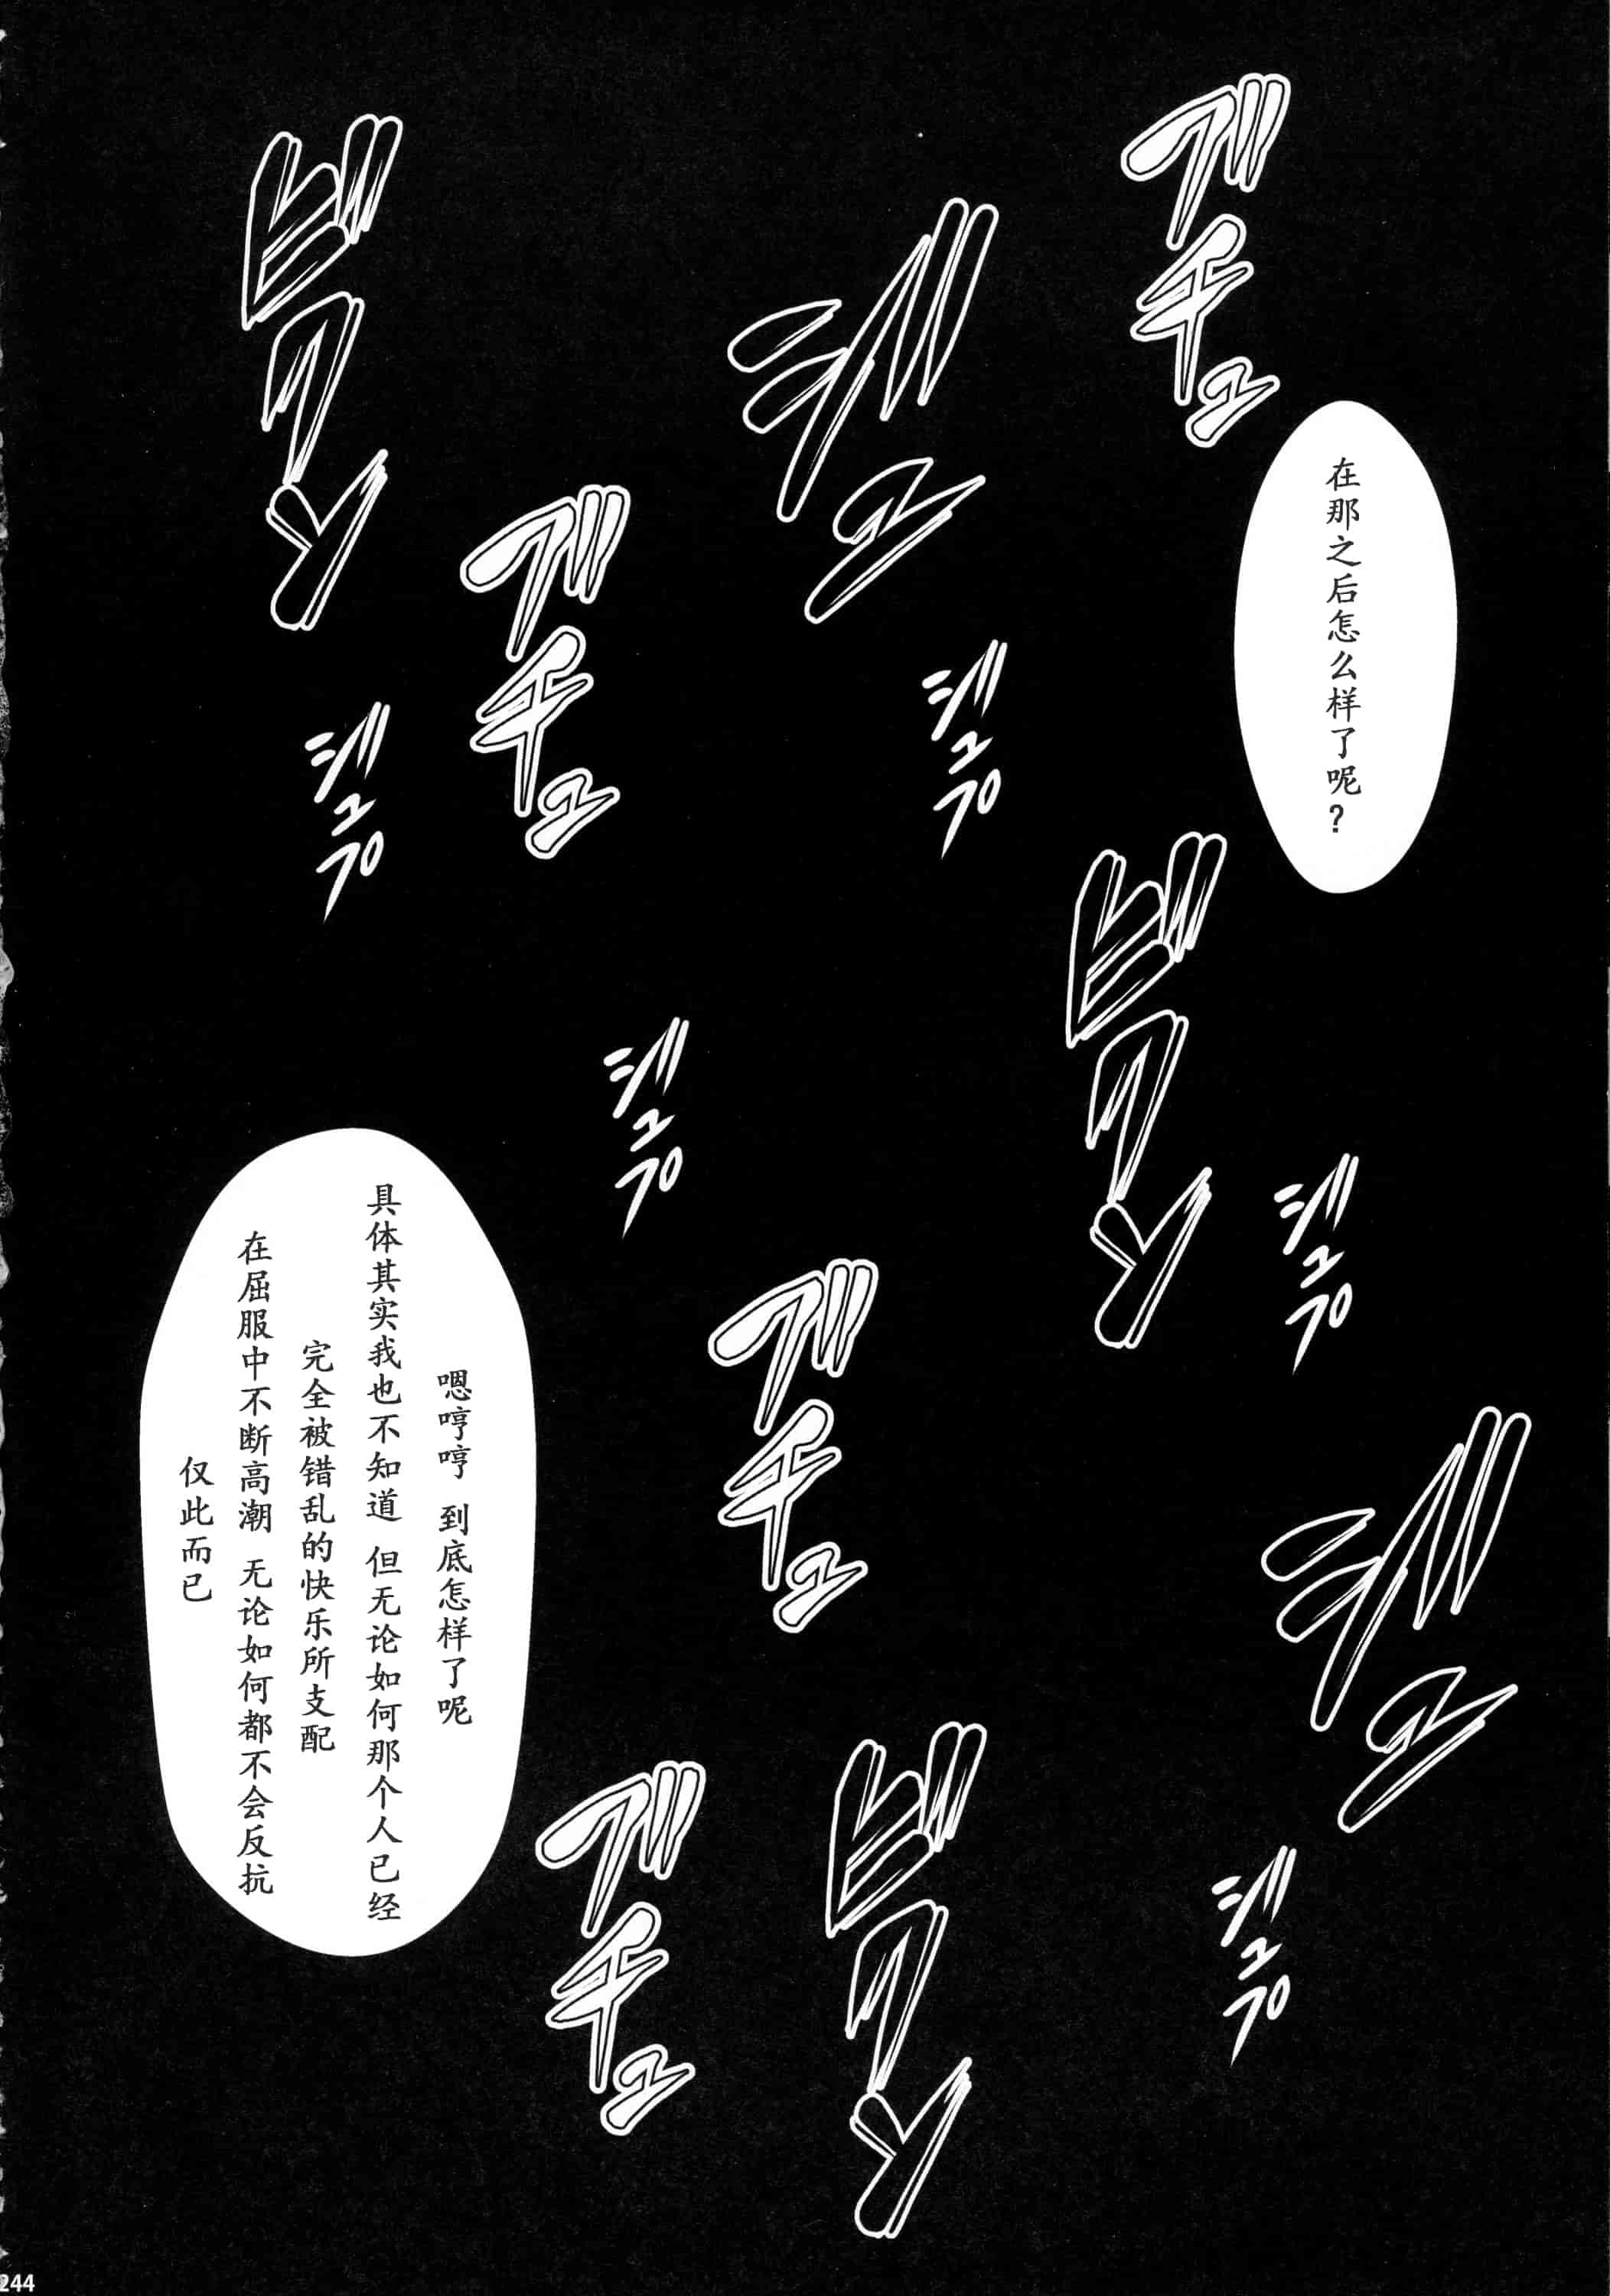 ブチュ
ジュ
ビクン
在那之后怎么样了呢？
ブチュ
ジュプ
ジュプ
ビクン
ジュプ
ジュプ
ブチュ
嗯哼哼 到底怎样了呢
具体其实我也不知道 但无论如何那个人已经
完全被错乱的快乐所支配
在屈服中不断高潮 无论如何都不会反抗
仅此而已
ジュ
ブチュ
ビクン
ジュプ
244